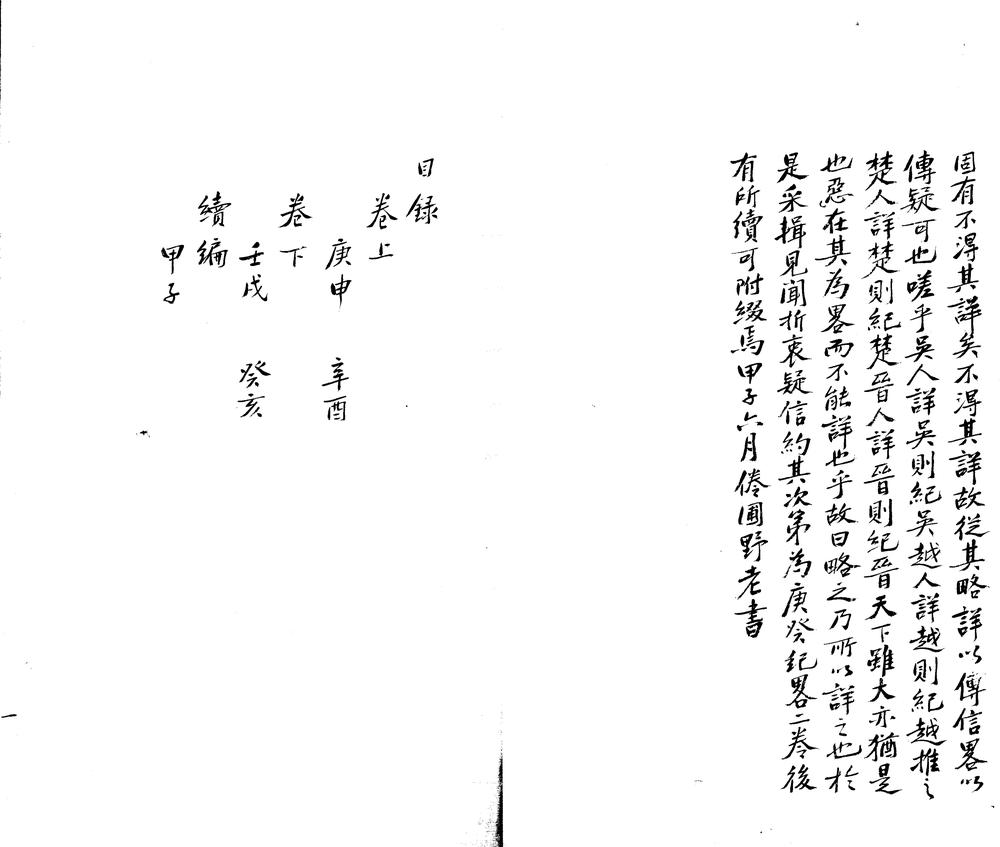 固有不淂其詳矣不淂其詳故從其略詳以傳信畧以
傳疑可也嗟乎吳人詳吳則紀吳越人詳越則紀越推之
楚人詳楚則紀楚晉人詳晉則紀晉天下雖大亦猶是
也惡在其為畧而不能詳也乎故曰略之乃所以詳之也於
是采揖見聞折衷疑信約其次第為庚癸紀畧二卷後
有所續可附綴焉甲子六月倦圃野老書
目錄
卷上
庚申 辛酉
卷下
壬戌 癸亥
續編
甲子